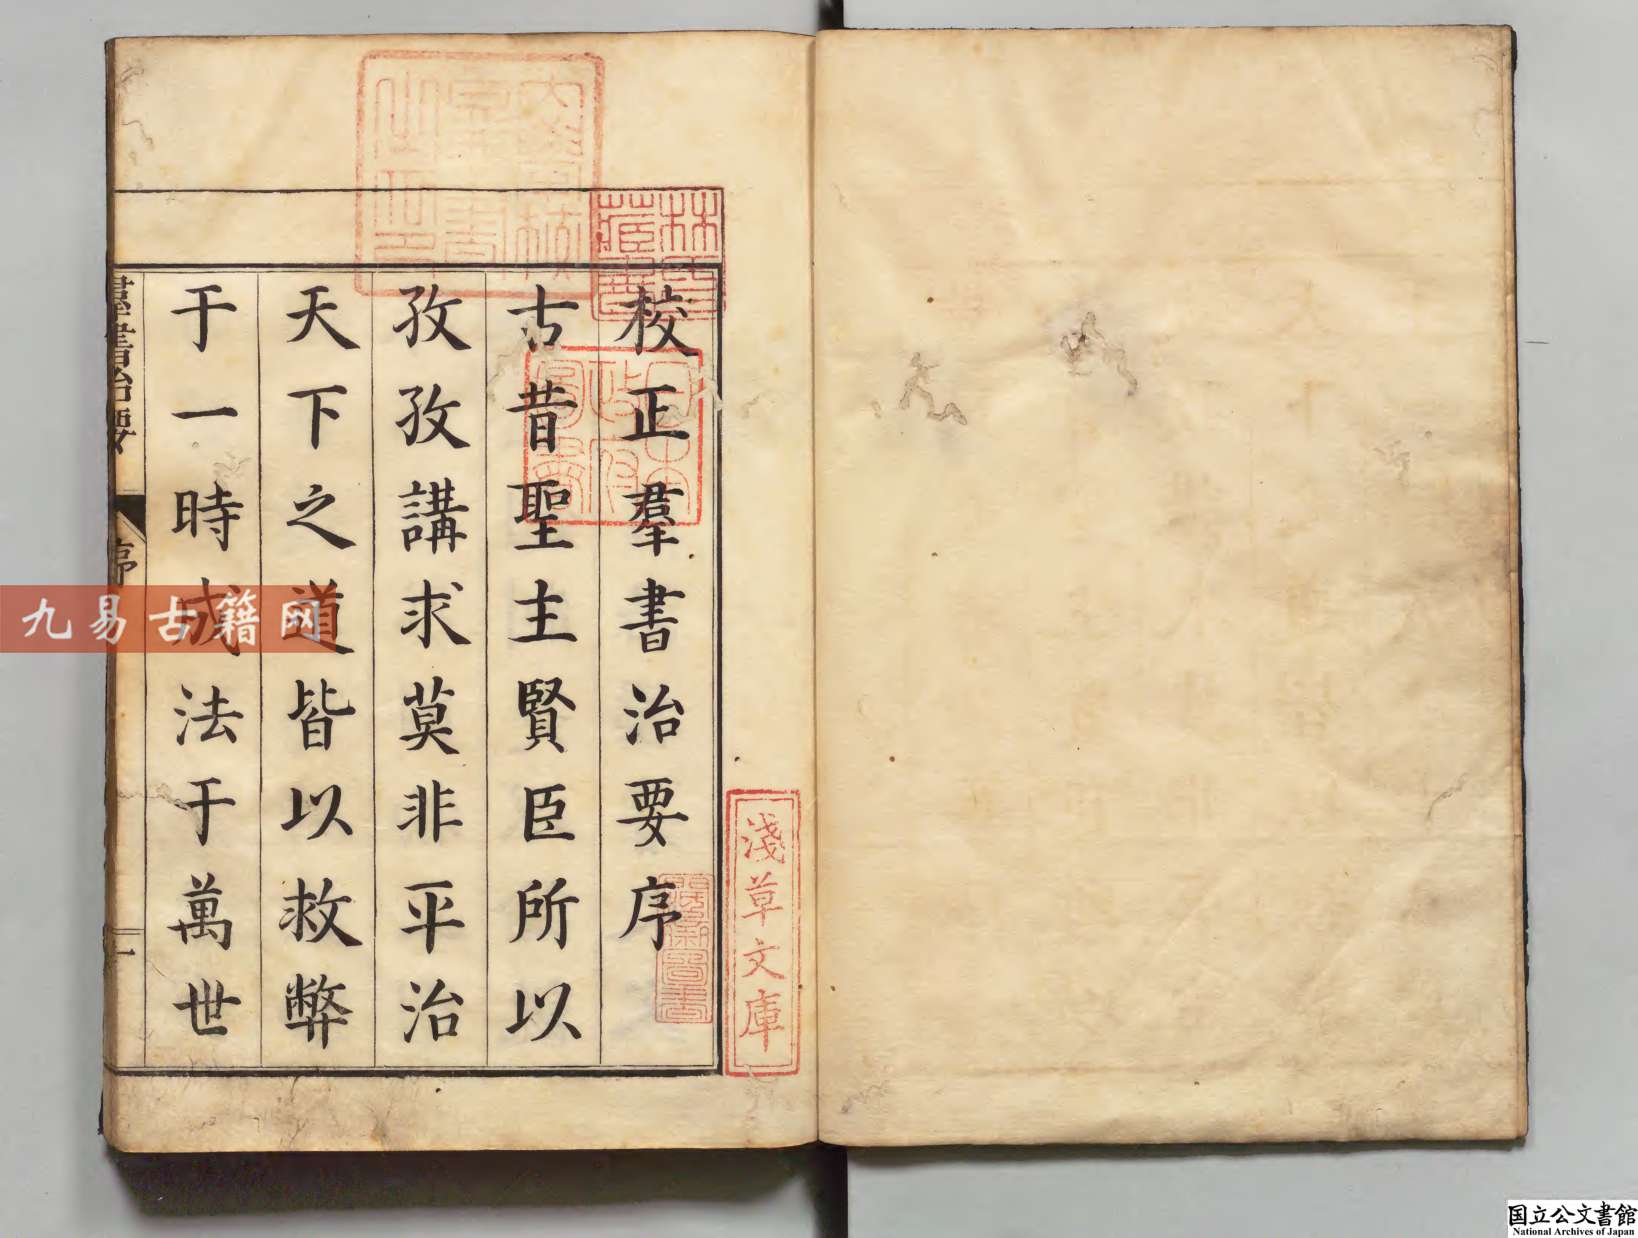 校正羣書治要序
古昔聖主賢臣所以
孜孜講求莫非平治
天下之道皆以救弊
于一時成法于萬世
羣書治要
序
一
林氏藏書
日本政府圖書
淺草文庫
九易古籍网
国立公文書館
National Archives of Japan